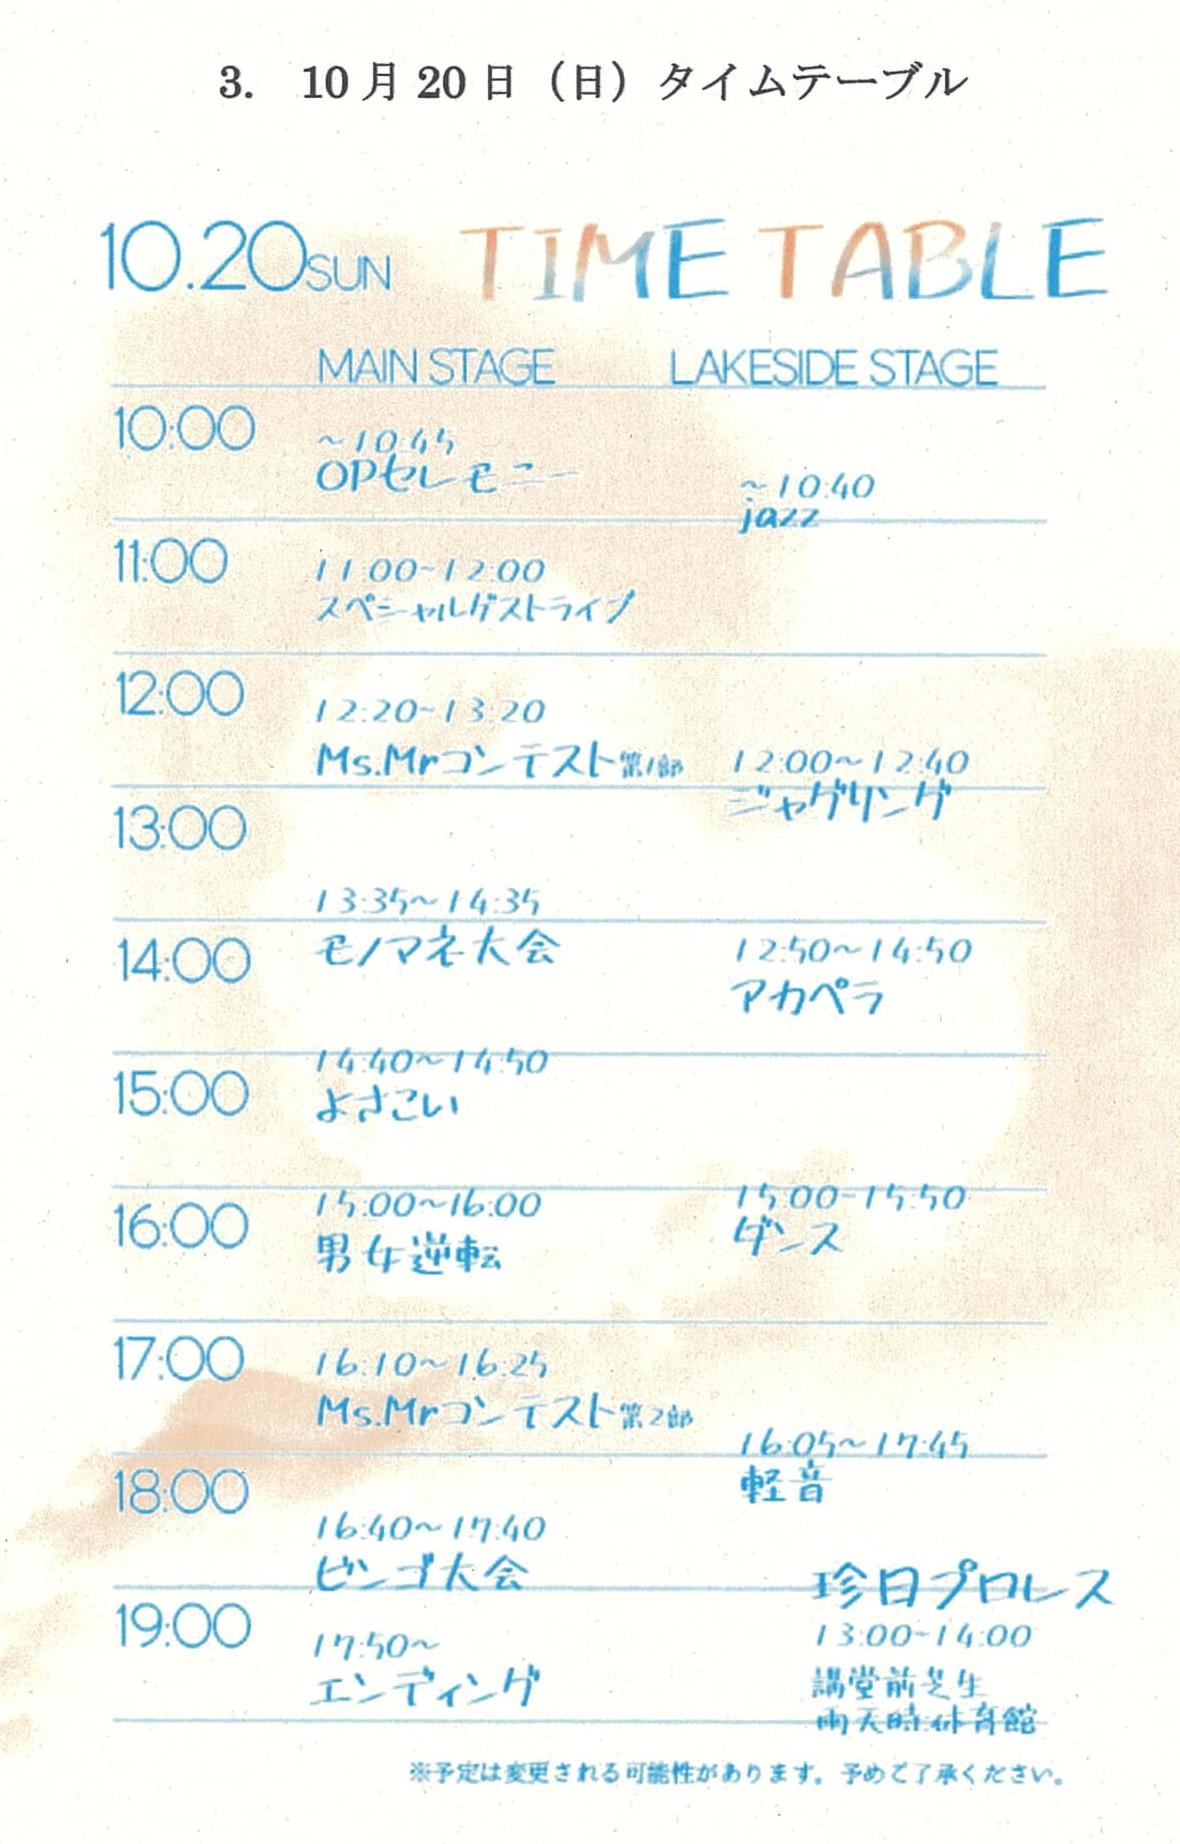 3. 10月20日（日）タイムテーブル
10.20SUN TIME TABLE
MAIN STAGE LAKESIDE STAGE
10:00
~10:45
OPセレモニー
~10:40
jazz
11:00
11:00~12:00
スペシャルゲストライブ
12:00
12:20~13:20
Ms.Mrコンテスト第1部
12:00~12:40
ジャグリング
13:00
13:35~14:35
モノマネ大会
14:00
12:50~14:50
アカペラ
14:40~14:50
よさこい
15:00
15:00~16:00
男女逆転
15:00-15:50
ダンス
16:00
17:00
16:10~16:25
Ms.Mrコンテスト第2部
16:05~17:45
軽音
18:00
16:40~17:40
ビンゴ大会
19:00
17:50~
エンディング
珍日プロレス
13:00~14:00
講堂前芝生
雨天時体育館
※予定は変更される可能性があります。予めご了承ください。